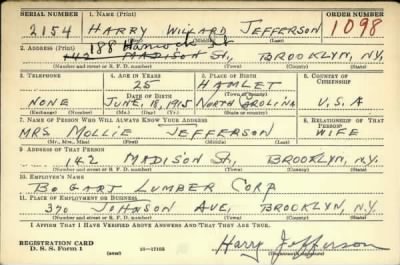 SERIAL NUMBER 1. NAME (Print) ORDER NUMBER
2154 HARRY WILLARD JEFFERSON 1098
(First) (Middle) (Last)
2. ADDRESS (Print) 188 Hancock St
142 MADISON St, BROOKLYN, N.Y.
(Number and street or R. F. D. number) (Town) (County) (State)
3. TELEPHONE 4. AGE IN YEARS 5. PLACE OF BIRTH 6. COUNTRY OF CITIZENSHIP
25 HAMLET
DATE OF BIRTH (Town or county)
NONE JUNE, 18, 1915 NORTH CAROLINA U.S.A
(Exchange) (Number) (Mo.) (Day) (Yr.) (State or country)
7. NAME OF PERSON WHO WILL ALWAYS KNOW YOUR ADDRESS 8. RELATIONSHIP OF THAT PERSON
MRS MOLLIE JEFFERSON WIFE
(Mr., Mrs., Miss) (First) (Middle) (Last)
9. ADDRESS OF THAT PERSON
142 MADISON St, BROOKLYN, N.Y.
(Number and street or R. F. D. number) (Town) (County) (State)
10. EMPLOYER'S NAME
BOGART LUMBER CORP
11. PLACE OF EMPLOYMENT OR BUSINESS
370 JOHNSON AVE, BROOKLYN, N.Y.
(Number and street or R. F. D. number) (Town) (County) (State)
I AFFIRM THAT I HAVE VERIFIED ABOVE ANSWERS AND THAT THEY ARE TRUE.
REGISTRATION CARD
D. S. S. Form 1 16—17105 Harry Jefferson
(Registrant's signature)